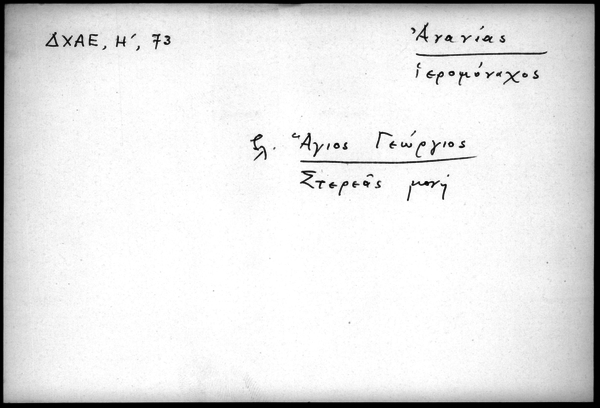 ΔΧΑΕ, Η΄, 73
Ἀνανίας
ἱερομόναχος
βλ. Ἅγιος Γεώργιος
Στερεᾶς μονή